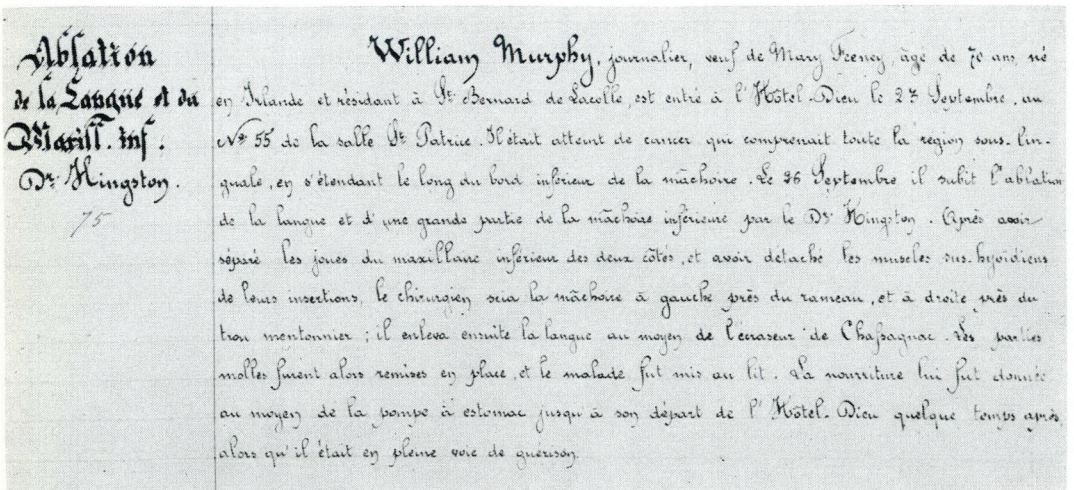 Ablation
de la Langue et du
Maxill. inf.
Dr. Hingston.
75
William Murphy, journalier, veuf de Mary Feeney, âgé de 70 ans, né
en Irlande et résidant à St. Bernard de Lacolle, est entré à l'Hôtel-Dieu le 23 Septembre, au
No. 55 de la salle St. Patrice. Il était atteint de cancer qui comprenait toute la région sous-lin-
guale, en s'étendant le long du bord inférieur de la mâchoire. Le 26 Septembre il subit l'ablation
de la langue et d'une grande partie de la mâchoire inférieure par le Dr. Hingston. Après avoir
séparé les joues du maxillaire inférieur des deux côtés, et avoir détaché les muscles sus-hyoïdiens
de leurs insertions, le chirurgien scia la mâchoire à gauche près du rameau, et à droite près du
trou mentonnier ; il enleva ensuite la langue au moyen de l'écraseur de Chassagnac. Les parties
molles furent alors remises en place, et le malade fut mis au lit. La nourriture lui fut donnée
au moyen de la pompe à estomac jusqu'à son départ de l'Hôtel-Dieu quelque temps après,
alors qu'il était en pleine voie de guérison.